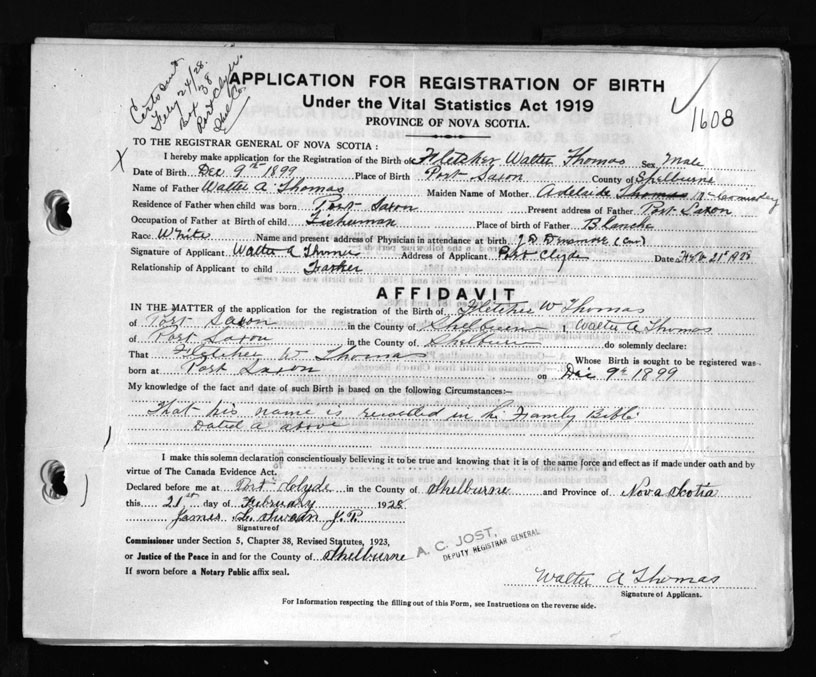 Feby 24/28
Box 38
Port Clyde
APPLICATION FOR REGISTRATION OF BIRTH
Under the Vital Statistics Act 1919
PROVINCE OF NOVA SCOTIA.
1608
TO THE REGISTRAR GENERAL OF NOVA SCOTIA :
X I hereby make application for the Registration of the Birth of Fletcher Walter Thomas Sex Male
Date of Birth Dec 9th 1899 Place of Birth Port Saxon County of Shelburne
Name of Father Walter A Thomas Maiden Name of Mother Adelaide Thomas
Residence of Father when child was born Port Saxon Present address of Father Port Saxon
Occupation of Father at Birth of child Fisherman Place of birth of Father Blanche
Race White Name and present address of Physician in attendance at birth
Signature of Applicant Walter A Thomas Address of Applicant Port Clyde Date Feb. 21st 1928
Relationship of Applicant to child Father
AFFIDAVIT
IN THE MATTER of the application for the registration of the Birth of Fletcher W Thomas
of Port Saxon in the County of Shelburne I Walter A Thomas
of Port Saxon in the County of Shelburne do solemnly declare:
That Fletcher W Thomas Whose Birth is sought to be registered was
born at Port Saxon on Dec 9th 1899
My knowledge of the fact and date of such Birth is based on the following Circumstances:—
That his name is recorded in the Family Bible
Dated as above
I make this solemn declaration conscientiously believing it to be true and knowing that it is of the same force and effect as if made under oath and by
virtue of The Canada Evidence Act.
Declared before me at Port Clyde in the County of Shelburne and Province of Nova Scotia
this 21st day of February 1928
James Swain J.P.
Signature of
Commissioner under Section 5, Chapter 38, Revised Statutes, 1923,
or Justice of the Peace in and for the County of Shelburne
A. C. JOST,
DEPUTY REGISTRAR GENERAL
If sworn before a Notary Public affix seal.
Walter A Thomas
Signature of Applicant.
For Information respecting the filling out of this Form, see Instructions on the reverse side.